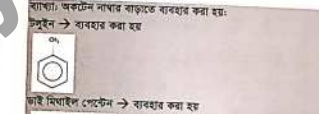 ব্যাখ্যা: অকটেন নাম্বার বাড়াতে ব্যবহার করা হয়:
টলুইন → ব্যবহার করা হয়
CH₃
ডাই মিথাইল পেন্টেন → ব্যবহার করা হয়